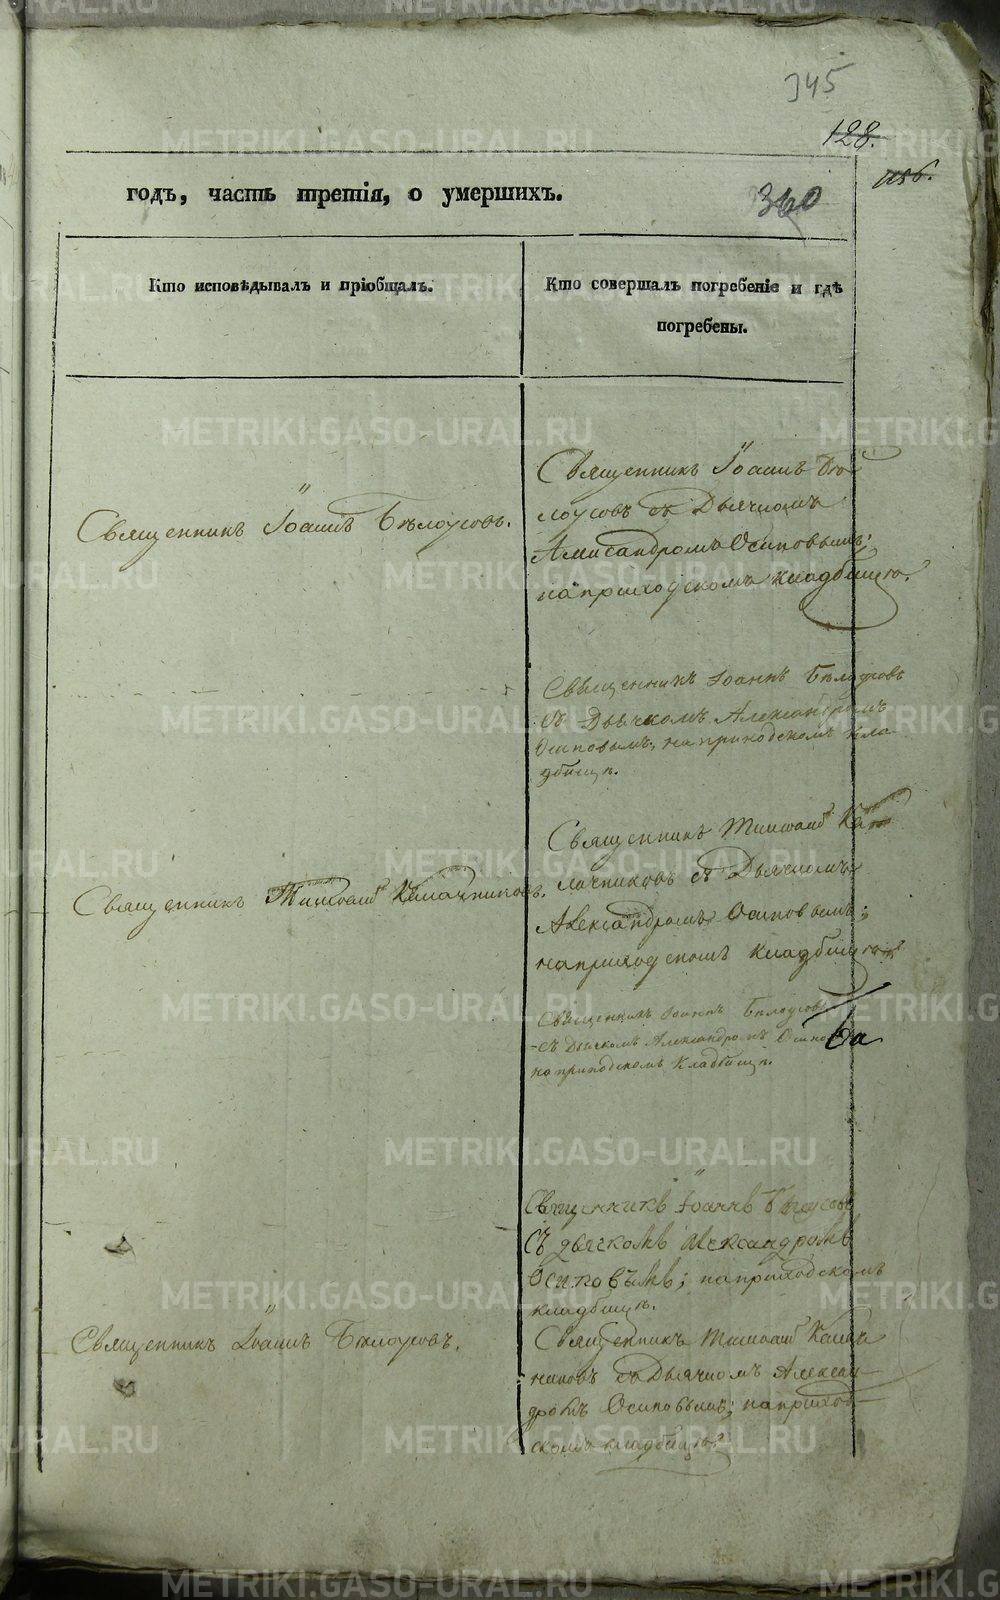 345
128.
156.
годъ, часть третія, о умершихъ.
360
Кто исповѣдывалъ и пріобщалъ.
Кто совершалъ погребеніе и гдѣ
погребены.
Священникъ Іоаннъ Бѣлоусовъ.
Священникъ Іоаннъ Бѣ-
лоусовъ съ Дьячкомъ
Александромъ Осиповымъ;
на приходскомъ кладбищѣ.
Священникъ Іоаннъ Бѣлоусовъ
съ Дьячкомъ Александромъ
Осиповымъ; на приходскомъ кла-
дбищѣ.
Священникъ Тимофей Калачниковъ.
Священникъ Тимофей Ка-
лачниковъ съ Дьячкомъ
Александромъ Осиповымъ;
на приходскомъ кладбищѣ.
Священникъ Іоаннъ Бѣлоусовъ
съ Дьячкомъ Александромъ
на приходскомъ кладбищѣ.
Священникъ Іоаннъ Бѣлоусовъ
Съ дьячкомъ Александромъ
Осиповымъ; на приходскомъ
кладбищѣ.
Священникъ Іоаннъ Бѣлоусовъ.
Священникъ Тимофей
съ Дьячкомъ Алексан-
дромъ Осиповымъ; на приход-
скомъ кладбищѣ.
METRIKI.GASO-URAL.RU